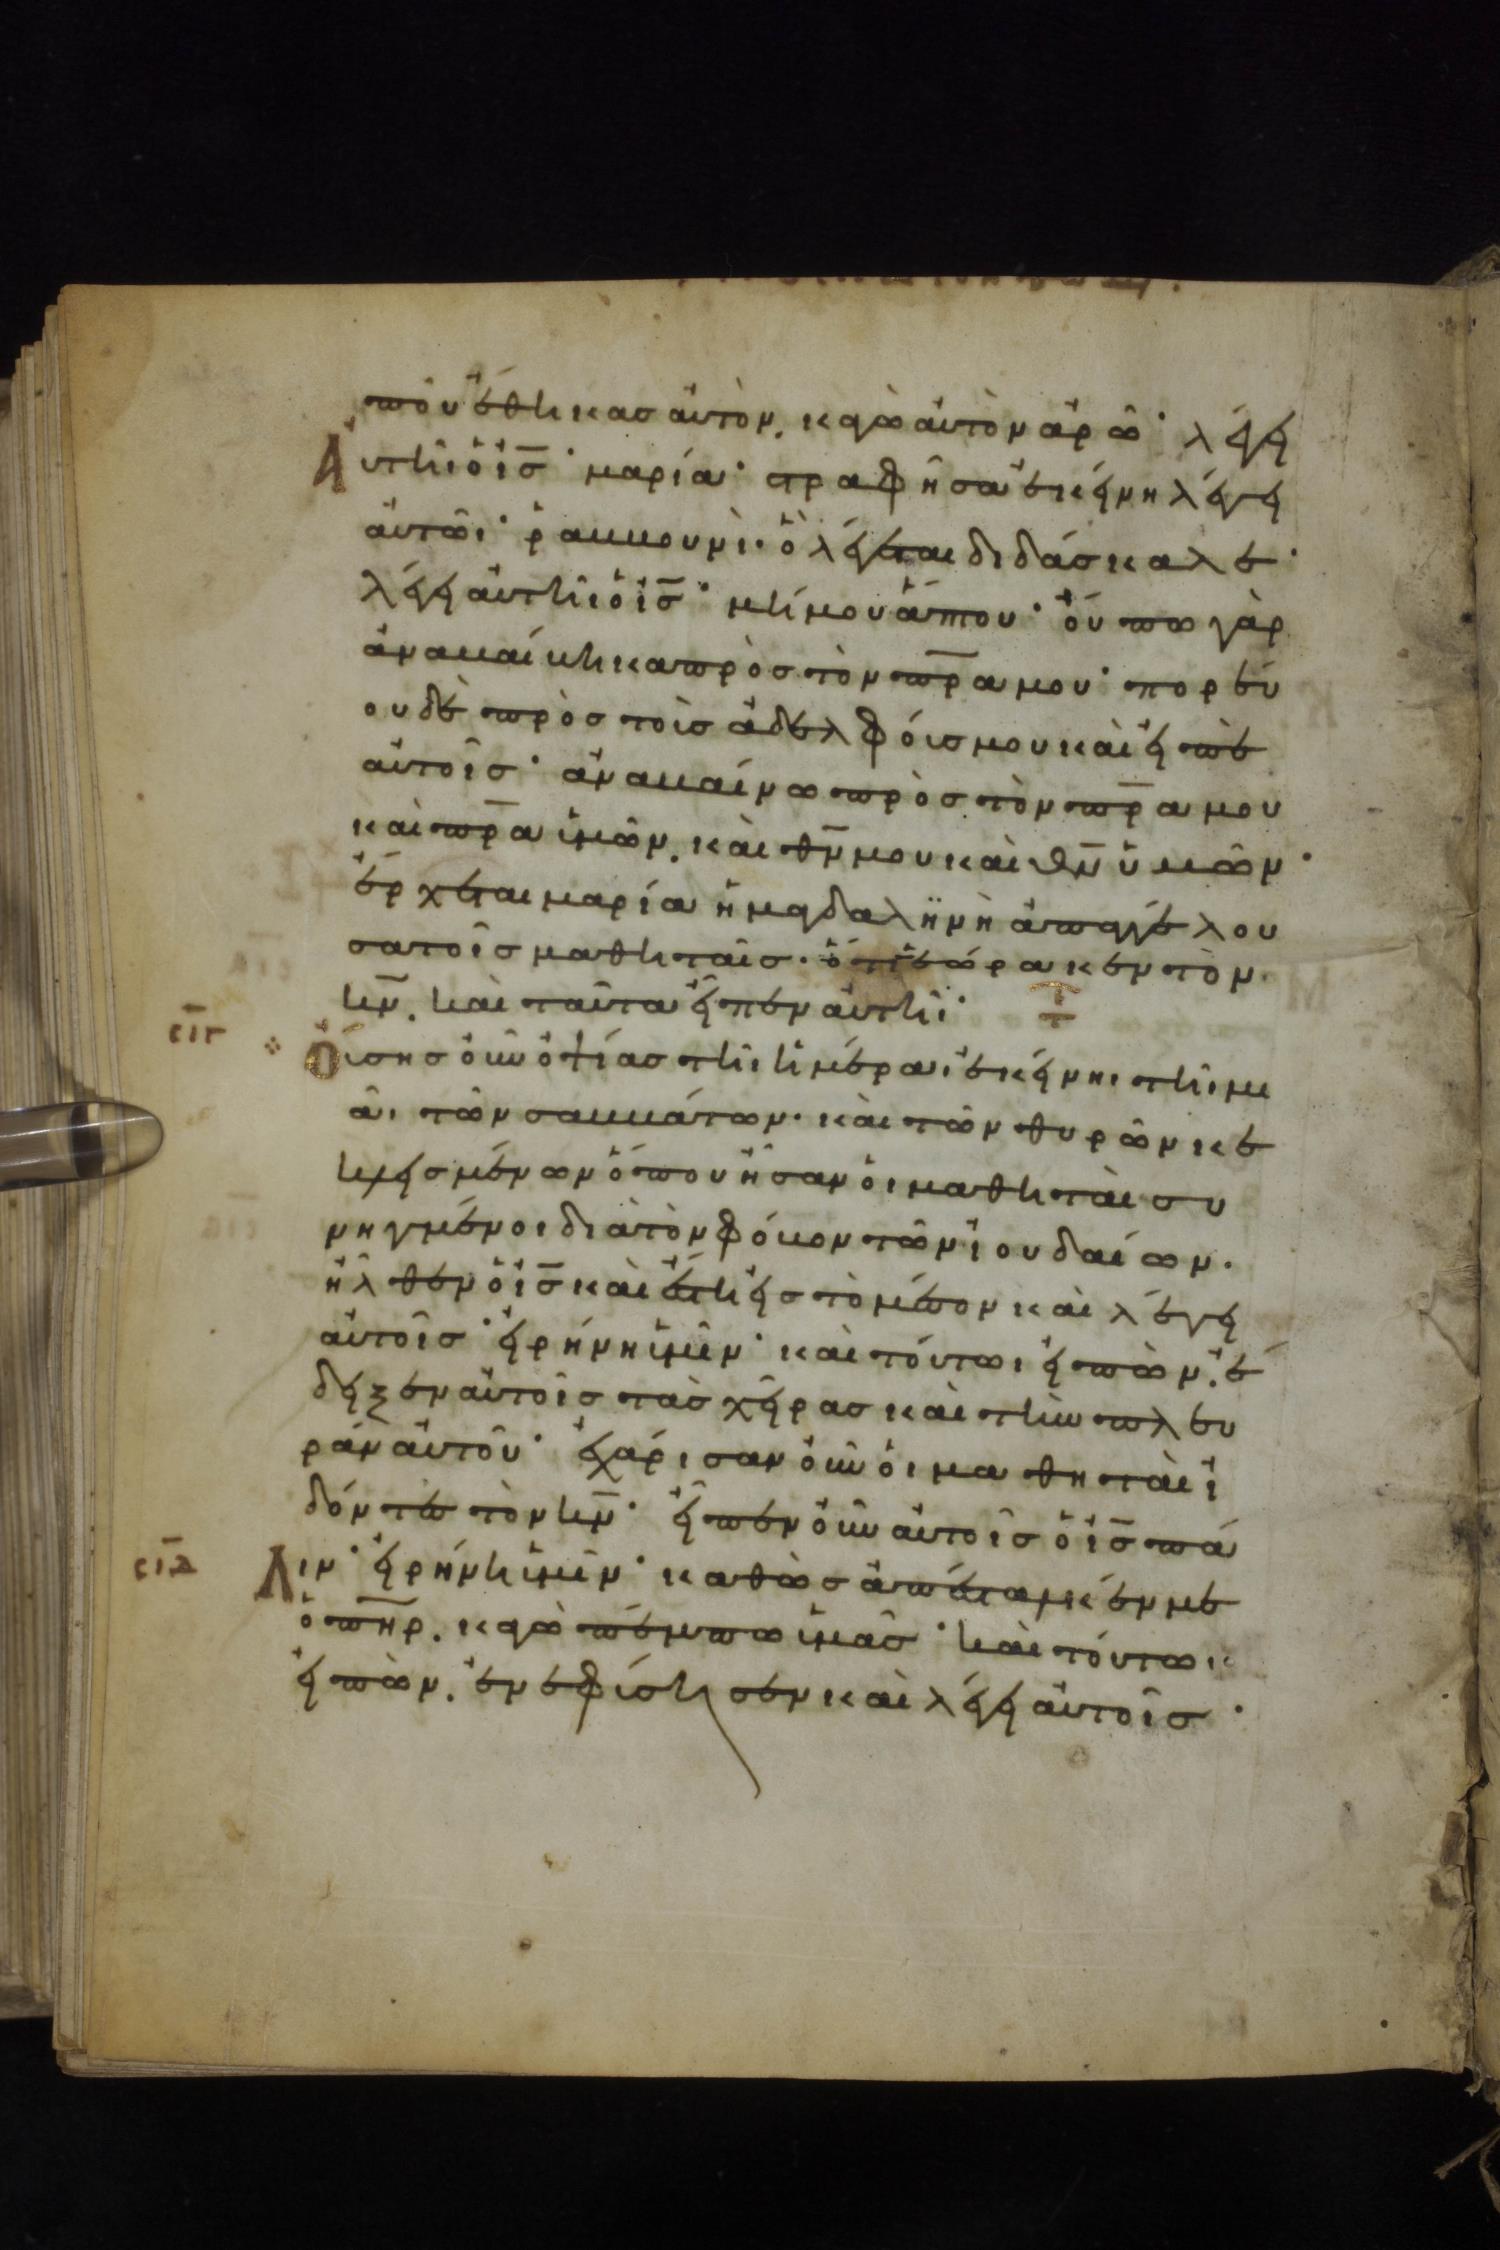 ποῦ ἔθηκας αὐτὸν. κἀγὼ αὐτὸν ἀρῶ· λέγει
Αὐτῆι ὁ ἰ̅ς̅· μαρία· στραφῆσα ἐκείνη λέγει
αὐτῶι· ῥαββουνὶ· ὃ λέγεται διδάσκαλε·
λέγει αὐτῆι ὁ ἰ̅ς̅· μή μου ἅπτου· οὔπω γὰρ
ἀναβαίβηκα πρὸς τὸν π̅ρ̅α μου· πορεύ
ου δὲ πρὸς τοὺς ἀδελφούς μου καὶ εἰπὲ
αὐτοῖς· ἀναβαίνω πρὸς τὸν π̅ρ̅α μου
καὶ π̅ρ̅α ὑμῶν. καὶ θ̅ν̅ μου καὶ θ̅ν̅ ὑμῶν·
ἔρχεται μαρία ἡ μαγδαληνὴ ἀπαγγέλου
σα τοῖς μαθηταῖς· ὅτι ἑώρακεν τὸν
κ̅ν̅. καὶ ταῦτα εἶπεν αὐτῆι·
σ̅ι̅γ Οὔσης οὖν ὀψίας τῆι ἡμέραι ἐκείνηι τῆι μι
ᾶι τῶν σαββάτων· καὶ τῶν θυρῶν κε
κλεισμένων ὅπου ἦσαν οἱ μαθηταὶ συ
νηγμένοι διὰ τὸν φόβον τῶν ἰουδαίων·
ἦλθεν ὁ ἰ̅ς̅ καὶ ἔστη εἰς τὸ μέσον καὶ λέγει
αὐτοῖς· εἰρήνη ὑμῖν· καὶ τοῦτωι εἰπὼν. ἔ
δειξεν αὐτοῖς τὰς χεῖρας καὶ τὴν πλευ
ρὰν αὐτοῦ· ἐχάρισαν οὖν οἱ μαθηταὶ ἰ
δόντες τὸν κ̅ν̅· εἶπεν οὖν αὐτοῖς ὁ ἰ̅ς̅ πά
σ̅ι̅δ Λιν· εἰρήνη ὑμῖν· καθὼς ἀπέσταλκέν με
ὁ π̅η̅ρ. κἀγὼ πέμπω ὑμᾶς· καὶ τοῦτωι
εἰπὼν. ἐνεφύσησεν καὶ λέγει αὐτοῖς·